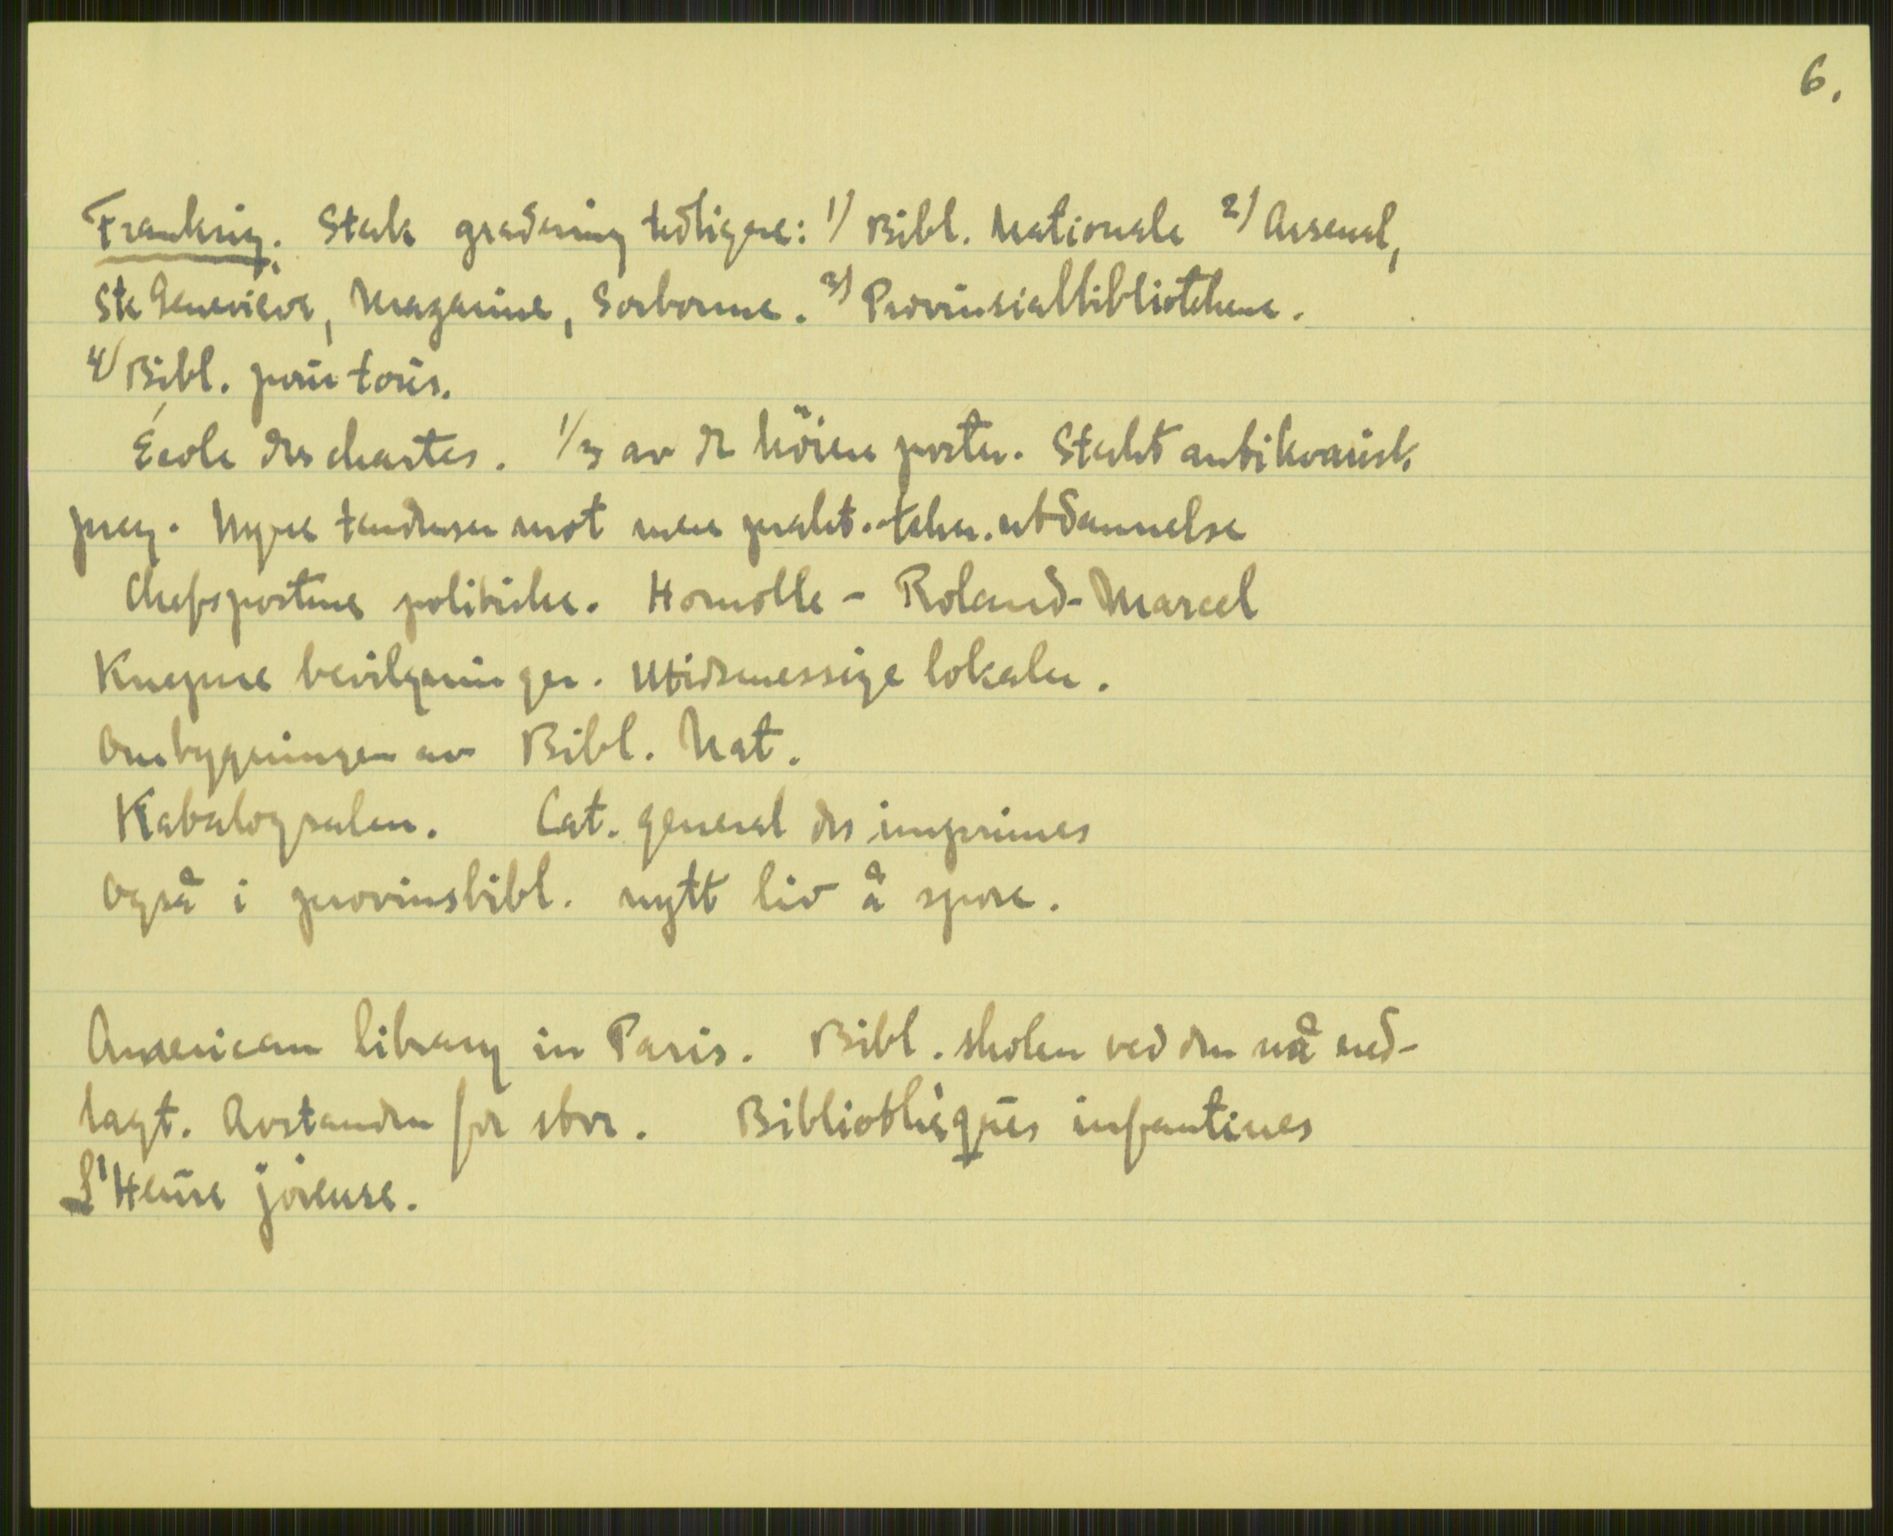 6.
Frankrig. Sterk gradering tidligere: 1/ Bibl. Nationale 2/ Arsenal,
Ste Geneviève, Mazarine, Sorbonne. 3/ Provinsialbibliotekene.
4/ Bibl. pour tous.
École des chartes. 1/3 av de höiere poster. Sterkt antikvarisk
preg. Nyere tendenser mot mere prakt.-tekn. utdannelse
Chefspostene politiske. Homolle - Roland-Marcel
Knepne bevilgninger. Utidsmessige lokaler.
Ombygningen av Bibl. Nat.
Katalogsalen. Cat. general des imprimes
Også i provinsbibl. nytt liv å spore.
American library in Paris. Bibl. skolen ved den nå ned-
lagt. Avstanden for stor. Bibliothèques enfantines
L'Heure joieuse.